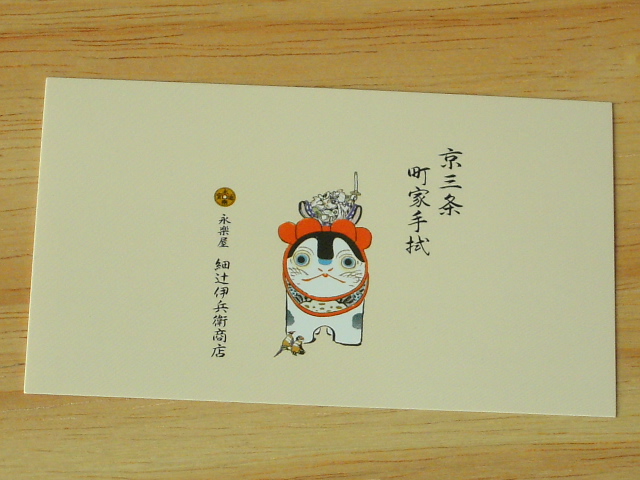 京三条
町家手拭
永樂屋
細辻伊兵衛商店